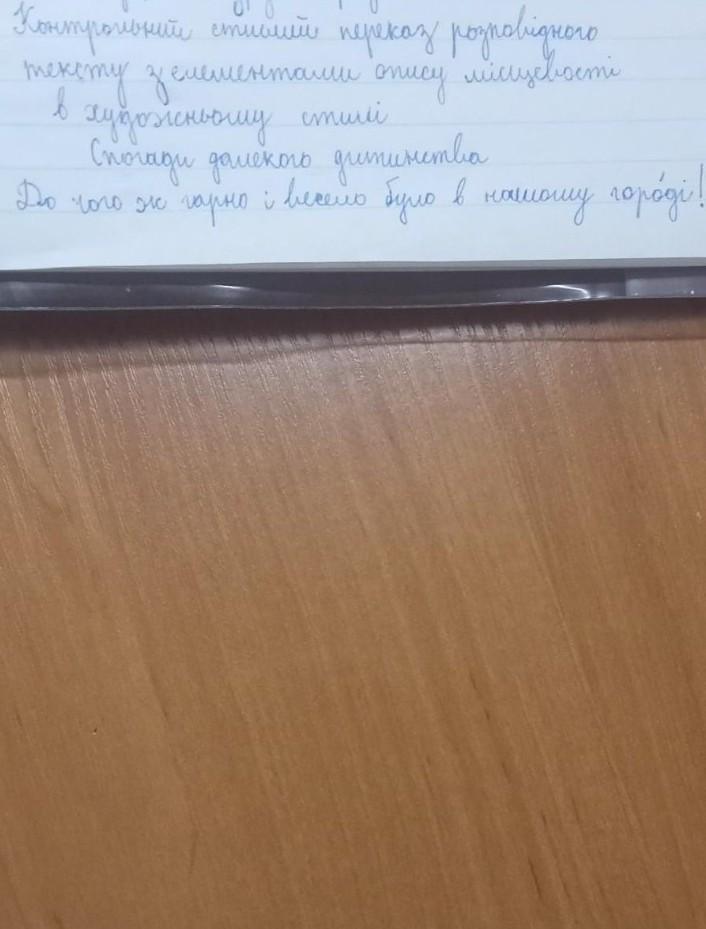 Контрольний стислий переказ розповідного
тексту з елементами опису місцевості
в художньому стилі
Спогади далекого дитинства
До чого ж гарно і весело було в нашому горо́ді!